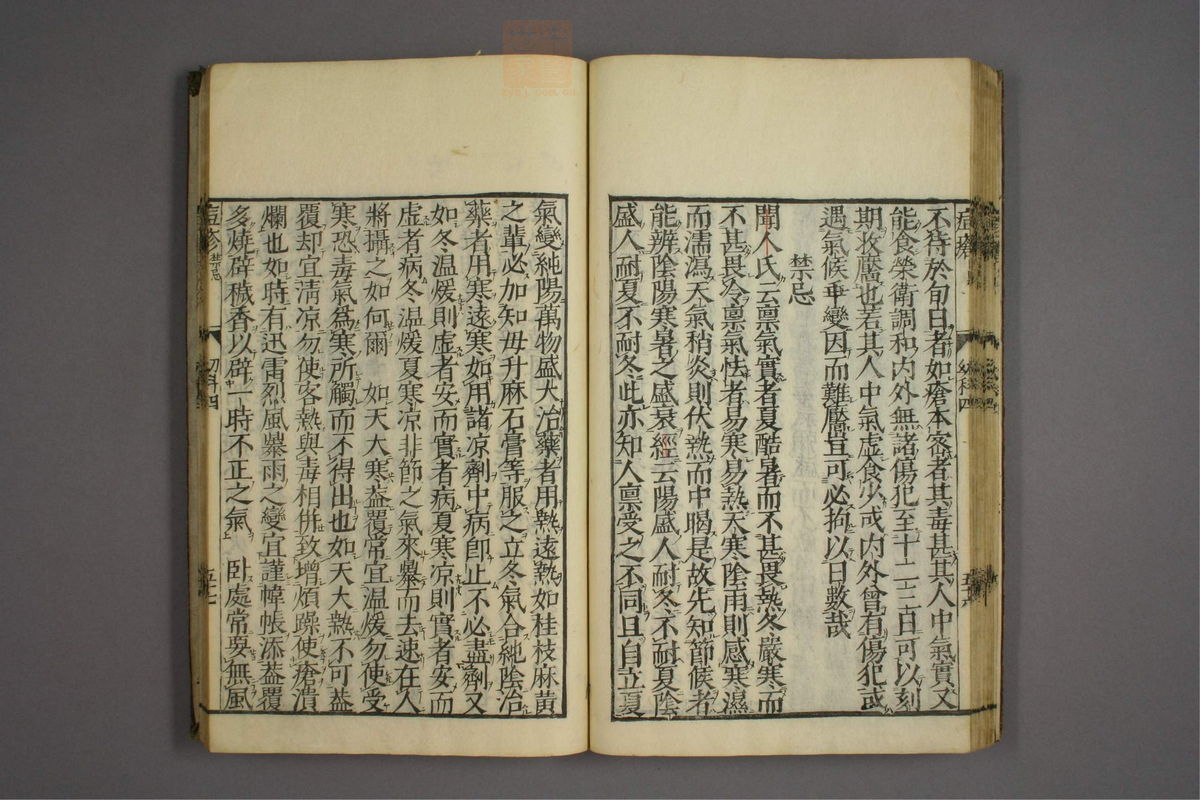 不待於旬日者如瘡本密者其毒甚其人中氣實又
能食榮衛調和内外無諸傷犯至十二三日可以刻
期收靨也若其人中氣虚食少或内外曾有傷犯或
遇氣候乖變因而難靨豈可必拘以日數哉
禁忌
聞人氏云禀氣實者夏酷暑而不甚畏熱冬嚴寒而
不甚畏冷禀氣怯者易寒易熱天寒陰雨則感寒濕
而濡瀉天氣稍炎則伏熱而中暍是故先知節候者
能辨陰陽寒暑之盛衰經云陽盛人耐冬不耐夏陰
盛人耐夏不耐冬此亦知人禀受之不同且自立夏
氣變純陽萬物盛大治藥者用熱遠熱如桂枝麻黄
之輩必加知毋升麻石膏等服之立冬氣合純陰治
藥者用寒遠寒如用諸凉劑中病即止不必盡劑又
如冬温煖則虚者安而實者病夏寒凉則實者安而
虚者病冬温煖夏寒凉非節之氣來暴而去速在人
將攝之如何爾 如天大寒盖覆常宜温煖勿使受
寒恐毒氣爲寒所觸而不得出也如天大熱不可盖
覆却宜淸凉勿使客熱與毒相併致增煩躁使瘡潰
爛也如時有迅雷烈風暴雨之變宜謹幃帳添蓋覆
多燒辟穢香以辟一時不正之氣 卧處常要無風
痘疹 禁忌 幼科四 五十七